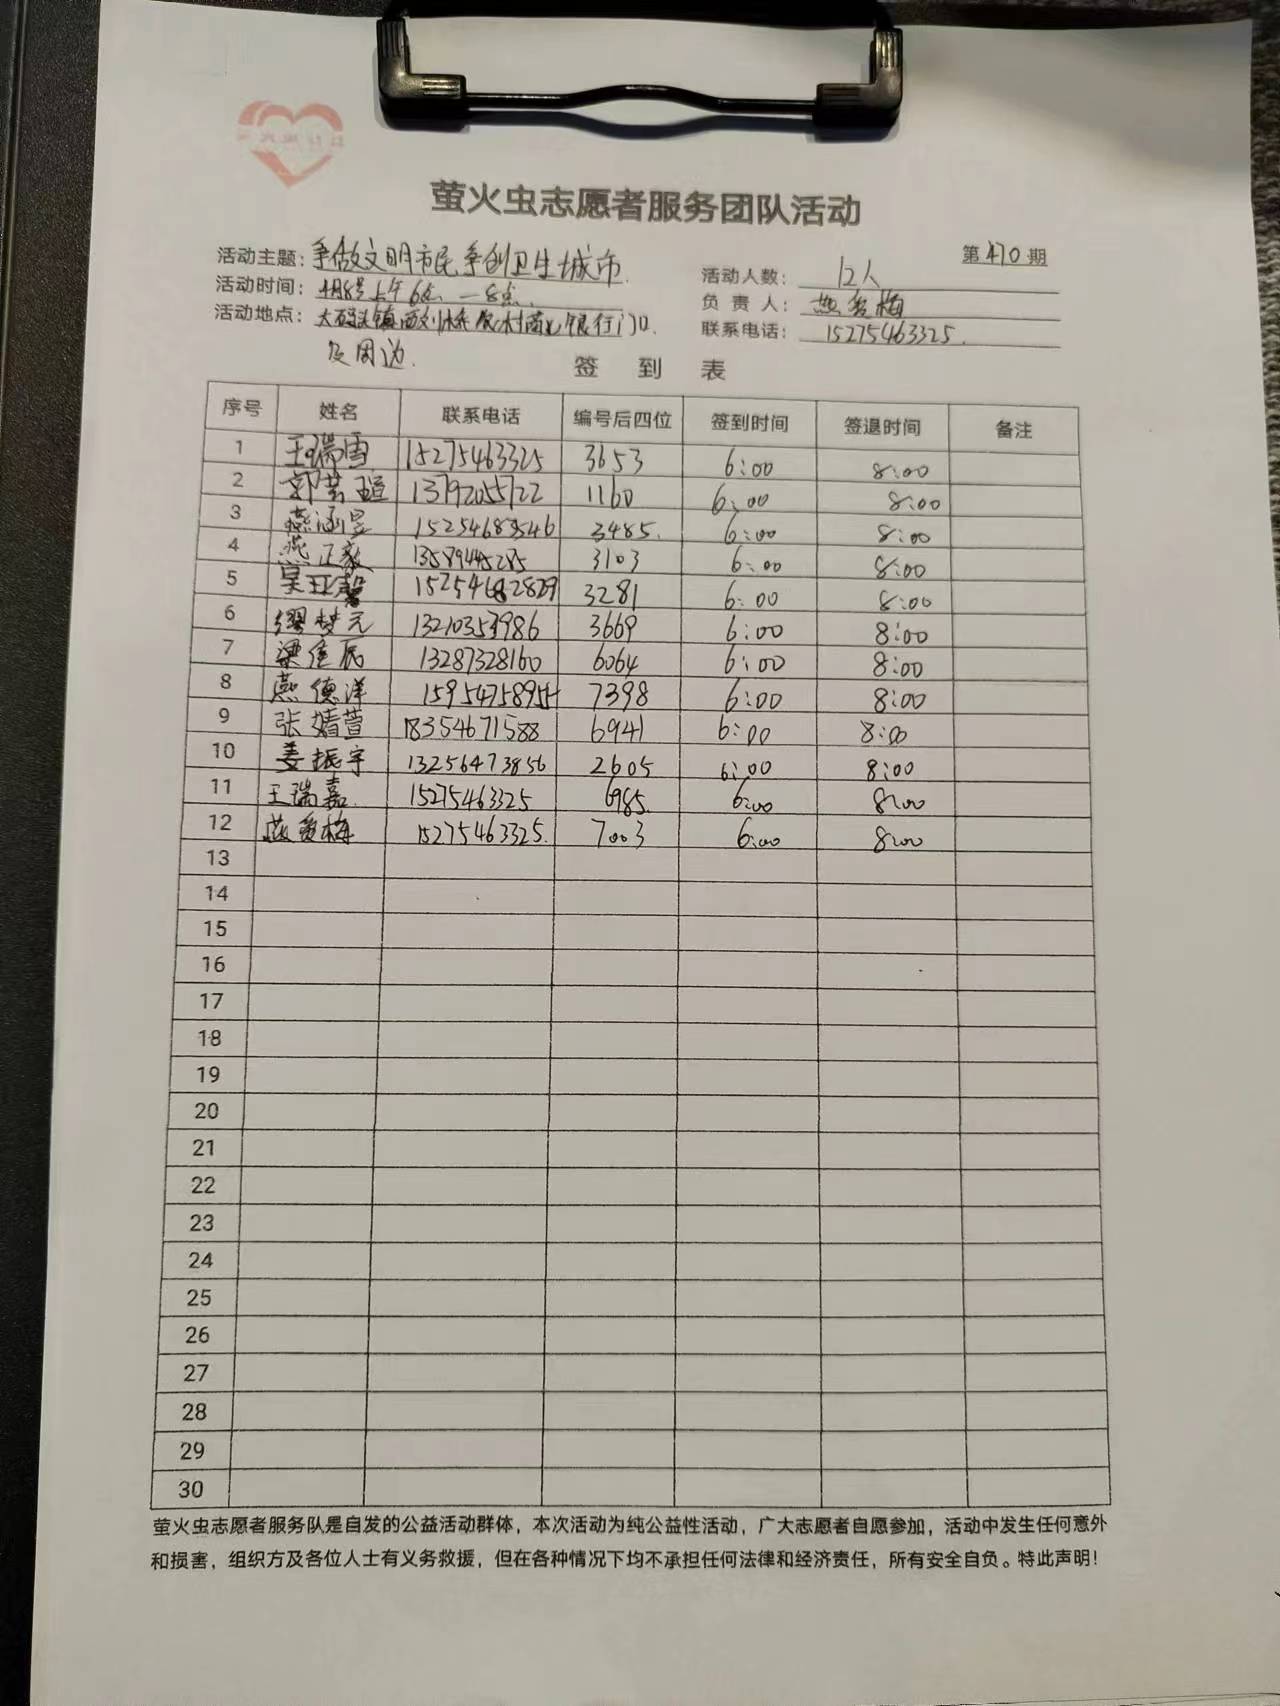 萤火虫志愿者服务团队活动
第470期
活动主题：争做文明市民争创卫生城市.
活动人数：12人
活动时间：4月8号上午6点—8点.
负责人：燕爱梅
活动地点：大码头镇西刘桥农村商业银行门口
联系电话：15275463325.
及周边.
签到表
序号 姓名 联系电话 编号后四位 签到时间 签退时间 备注
1 王瑞雪 15275463325 3653 6:00 8:00
2 郭芸瑄 13792055722 1160 6:00 8:00
3 燕涵昱 15254689546 3485. 6:00 8:00
4 燕正毅 13589445285 3103 6:00 8:00
5 吴亚馨 15254682829 3281 6:00 8:00
6 缪梦元 3669 6:00 8:00
7 梁佳辰 13287328160 6064 6:00 8:00
8 燕德洋 15954758955 7398 6:00 8:00
9 张婧萱 18354671588 6941 6:00 8:00
10 姜振宇 13256473856 2605 6:00 8:00
11 王瑞嘉. 15275463325 6985. 6:00 8:00
12 燕爱梅 15275463325. 7003 6:00 8:00
13
14
15
16
17
18
19
20
21
22
23
24
25
26
27
28
29
30
萤火虫志愿者服务队是自发的公益活动群体，本次活动为纯公益性活动，广大志愿者自愿参加，活动中发生任何意外
和损害，组织方及各位人士有义务救援，但在各种情况下均不承担任何法律和经济责任，所有安全自负。特此声明！